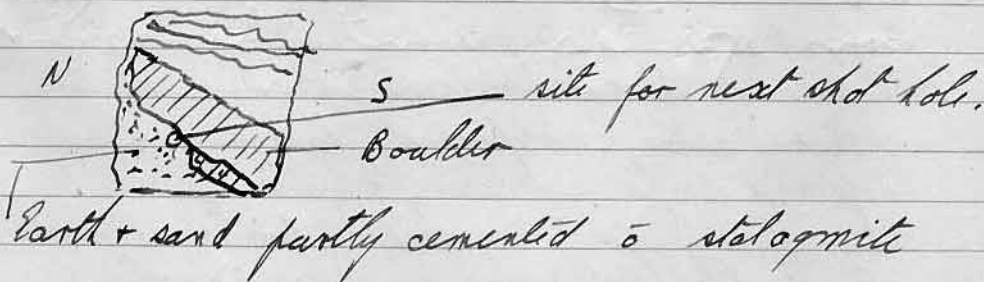 N
S
site for next shot hole.
Boulder
Earth + sand partly cemented c̄ stalagmite